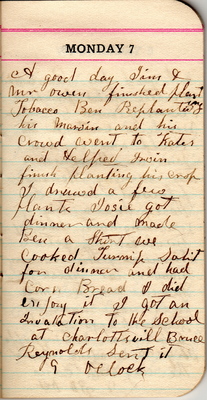 MONDAY 7
A good day Jim &
Mr Owen finished plant
Tobacco Ben Replanting
his Marvin and his
Crowd went to Kates
and Helped Irvin
finish planting his crop
I drawed a few
plants Josie got
dinner and made
Ben a Shirt we
Cooked Turnip Salit
for dinner and had
Corn Bread I did
enjoy it I got an
Invatation to the School
at Charlottsvill Bruce
Reynolds sent it
9 Oclock